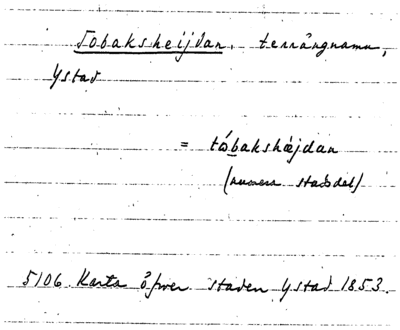 Tobaksheijdan, terrängnamn,
Ystad
= tóbakshæjdan
(numera stadsdel)
5106 Karta öfwer staden Ystad 1853.